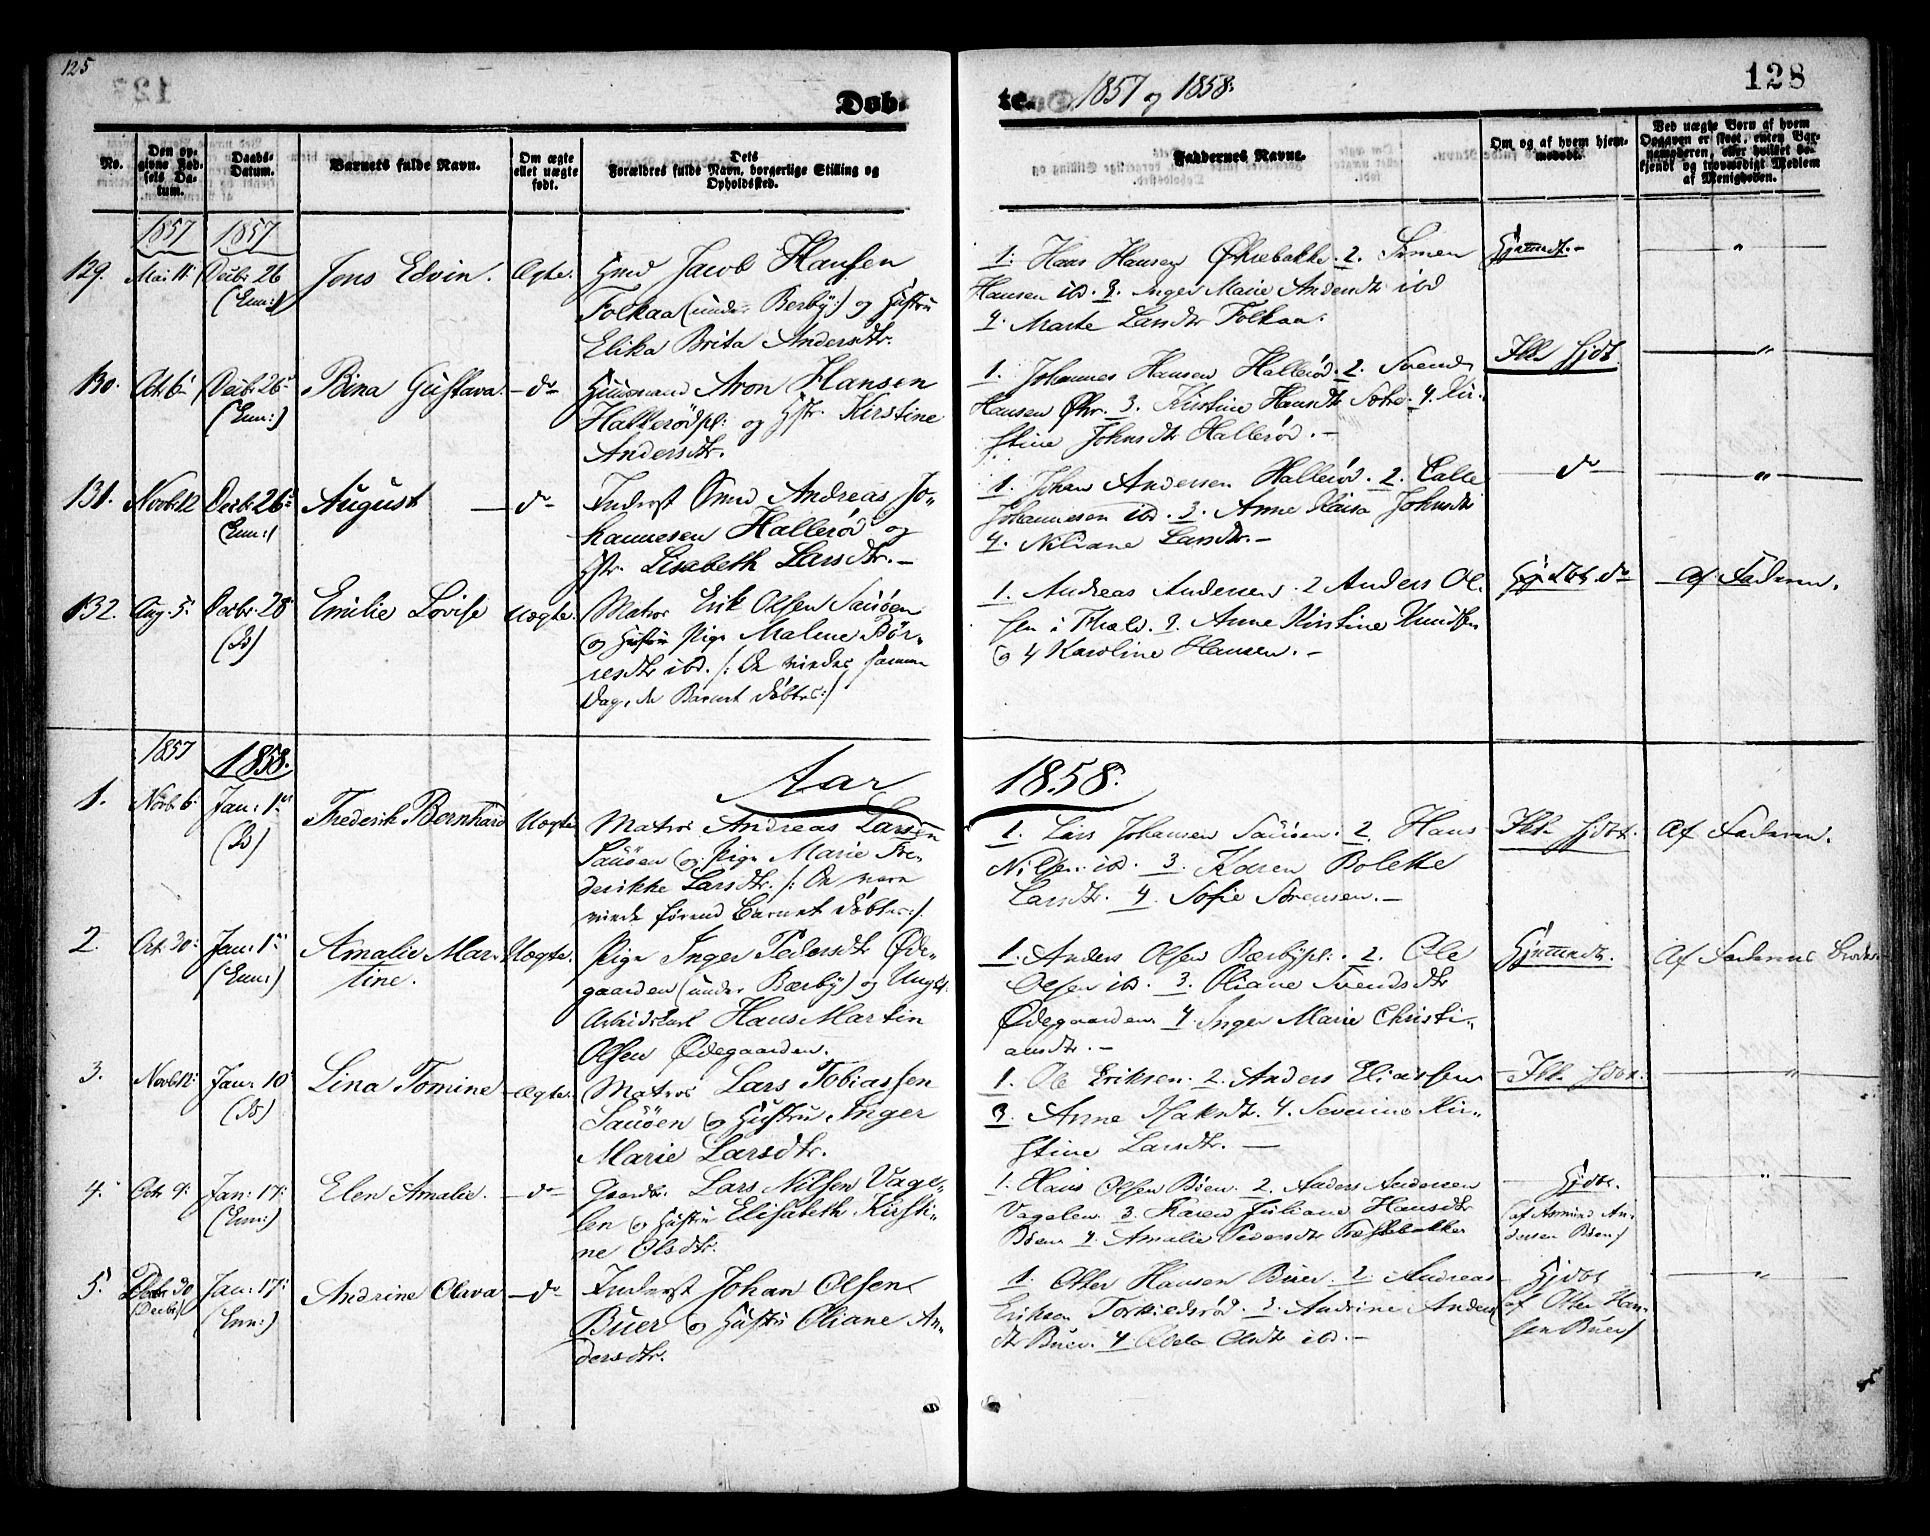 125
128
Døb-
te. 1857 og 1858:
No.
Den op-
givne Fød-
sels Da-
tum.
Daabs-
Datum.
Barnets fulde Navn.
Om ægte
eller uægte
født.
Dets
Forældres fulde Navn, borgerlige Stilling og
Opholdssted.
Faddernes Navne.
Om og af hvem hjem-
medøbt.
Ved uægte Børn af hvem
Opgaven er skeet, enten Bar-
nemoderen, eller hvilket be-
kjendt og troværdigt Medlem
af Menigheden.
1857 1857
129. Mai 11: Decbr: 26
(Enn:)
Jens Edvin.
Ægte.
Hmd Jacob Hansen
Folkaa (under Berby:) og Hustru
Elika Brita Andersdtr.
1. Hans Hansen Økrebakke. 2. Simen
Hansen ibd. 3. Inger Marie Andersdtr ibd
4. Marte Larsdtr Folkaa.
Hjemmdt. -
"
130. Oct. 6 Decbr: 26
(Enn:)
Bina Gustava.
do
Huusmand Aron Hansen
Hallerødpl: og Hstr. Kirstine
Andersdtr.
1. Johannes Hansen Hallerød. 2. Svend
Hansen Økr. 3. Kirstine Hansdtr 4. Kir-
stine Johnsdtr Hallerød. -
Ikke Hjdt
"
131. Novb: 12 Decbr: 26
(Enn:)
August
do
Inderst Smd Andreas Jo-
hannesen Hallerød og
Hstr. Lisabeth Larsdtr. -
1. Johan Andersen Hallerød. 2. Calle
Johannesen ibd. 3. Anne Kaisa Johnsdtr
4. Niliane Larsdtr. -
do
"
132. Aug. 5: Decbr: 28
(Id)
Emilie Lovise
Uægte.
Matros Erik Olsen Sauøen
og Pige Malene Bør-
resdtr ibd. /: De viedes samme
Dag, da Barnet døbtes:/
1. Andreas Andersen. 2 Anders Ol-
sen i Thael. 3. Anne Kirstine Knudsen
og 4 Karoline Hansen. -
Af Faderen.
1857 1858.
Aar 1858.
1. Novb: 6 Jan: 1ste
(Id)
Frederik Bernhard
Uægte
Matros Andreas Larsen
Sauøen og Pige Marie Fre-
derikke Larsdtr. /: De vare
viede førend Barnet døbtes:/.
1. Lars Johansen Sauøen. 2. Hans
Nilsen ibd. 3. Karen Bolette
Larsdtr. 4. Sofie Sørensen. -
Ikke Hjdt.
Af Faderen.
2 Oct. 30: Jan: 1ste
(Enn:)
Amalie Mar-
tine.
Uægte.
Pige Inger Pedersdtr Øde-
gaarden (under Bærby) og Ungk.
Arbeidskarl Hans Martin
Olsen Ødegaarden.
1. Anders Olsen Bærbypl. 2. Ole
Olsen ibd. 3. Oliane Svendsdtr
Ødegaarden. 4. Inger Marie Christi-
ansdtr. -
Hjemmdt.
Af Faderens Broder
3. Novb: 12: Jan: 10
(Id)
Lina Tomine
Ægte.
Matros Lars Tobiassen
Sauøen og Hustru Inger
Marie Larsdtr.
1. Ole Eriksen. 2. Anders Eliassen
3. Anne Hakndtr. 4. Severine Kir-
stine Larsdtr. -
Ikke Hjdt.
"
4. Octr 9: Jan: 17:
(Enn:)
Elen Amalie.
do
Gaardbr. Lars Nilsen Vage-
len og Hustru Elisabeth Kirsti-
ne Olsdtr.
1. Hans Olsen Bøen. 2. Anders Andersen
Vagelen 3. Karen Juliane Hansdtr
Bøen 4. Amalie Pedersdtr
Hjdt.
(af Asmund An-
dersen Bøen)
"
5. Octbr 30
(Decbr)
Jan: 17:
(Enn:)
Andrine Olava
do
Inderst Johan Olsen
Buer og Hustru Oliane An-
dersdtr.
1. Otter Hansen Buer. 2. Andreas
Eriksen Torkildsrød. 3. Andrine Anders-
dtr Buer. 4 Abela Olsdtr ibd. -
Hjdt
af Otter Han-
sen Buer)
"